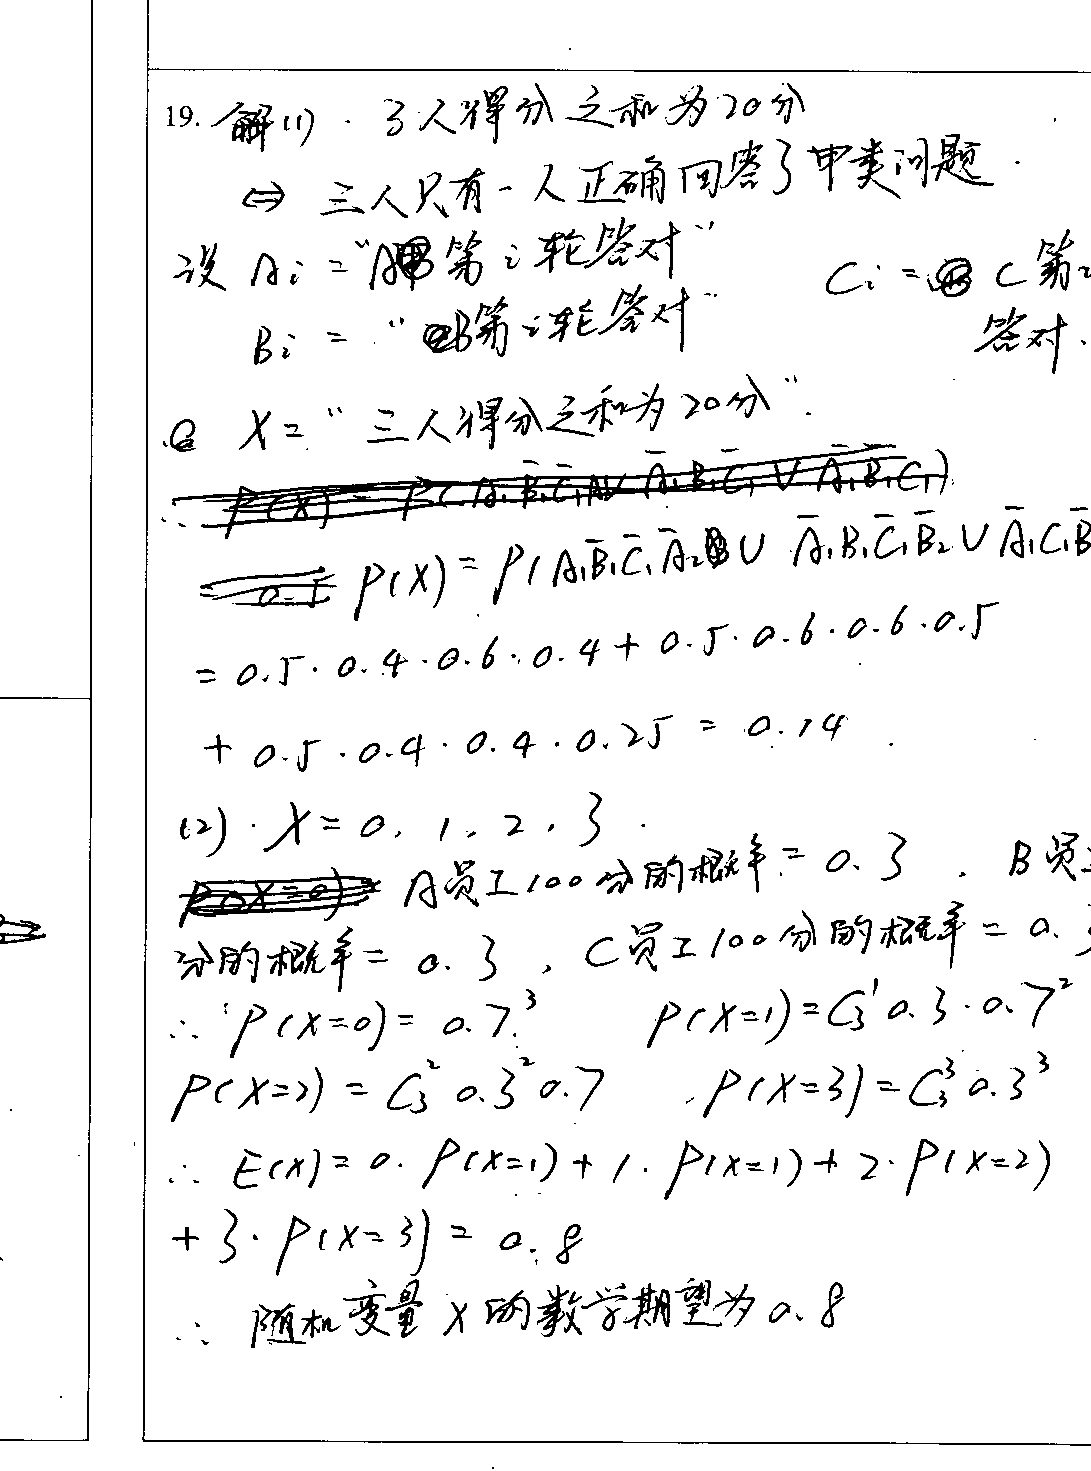 19. 解(1). 3人得分之和为20分
⇔ 三人只有一人正确回答了甲类问题.
设 Ai = "A第i轮答对" Ci = C第i
Bi = "B第i轮答对" 答对.
X = "三人得分之和为20分".
∴ P(X) = P(A₁B̄₁C̄₁ ∪ Ā₁B₁C̄₁ ∪ Ā₁B̄₁C₁)
= 0.5 P(X) = P(A₁B̄₁C̄₁Ā₂ ∪ Ā₁B₁C̄₁B̄₂ ∪ Ā₁C₁B̄
= 0.5·0.4·0.6·0.4 + 0.5·0.6·0.6·0.5
+ 0.5·0.4·0.4·0.25 = 0.14.
(2). X = 0, 1, 2, 3.
P(X=0) A员工100分的概率 = 0.3, B员工
分的概率 = 0.3, C员工100分的概率 = 0.3
∴ P(X=0) = 0.7³ P(X=1) = C₃¹ 0.3·0.7²
P(X=2) = C₃² 0.3² 0.7 P(X=3) = C₃³ 0.3³
∴ E(X) = 0·P(X=1) + 1·P(X=1) + 2·P(X=2)
+ 3·P(X=3) = 0.8
∴ 随机变量X的数学期望为0.8